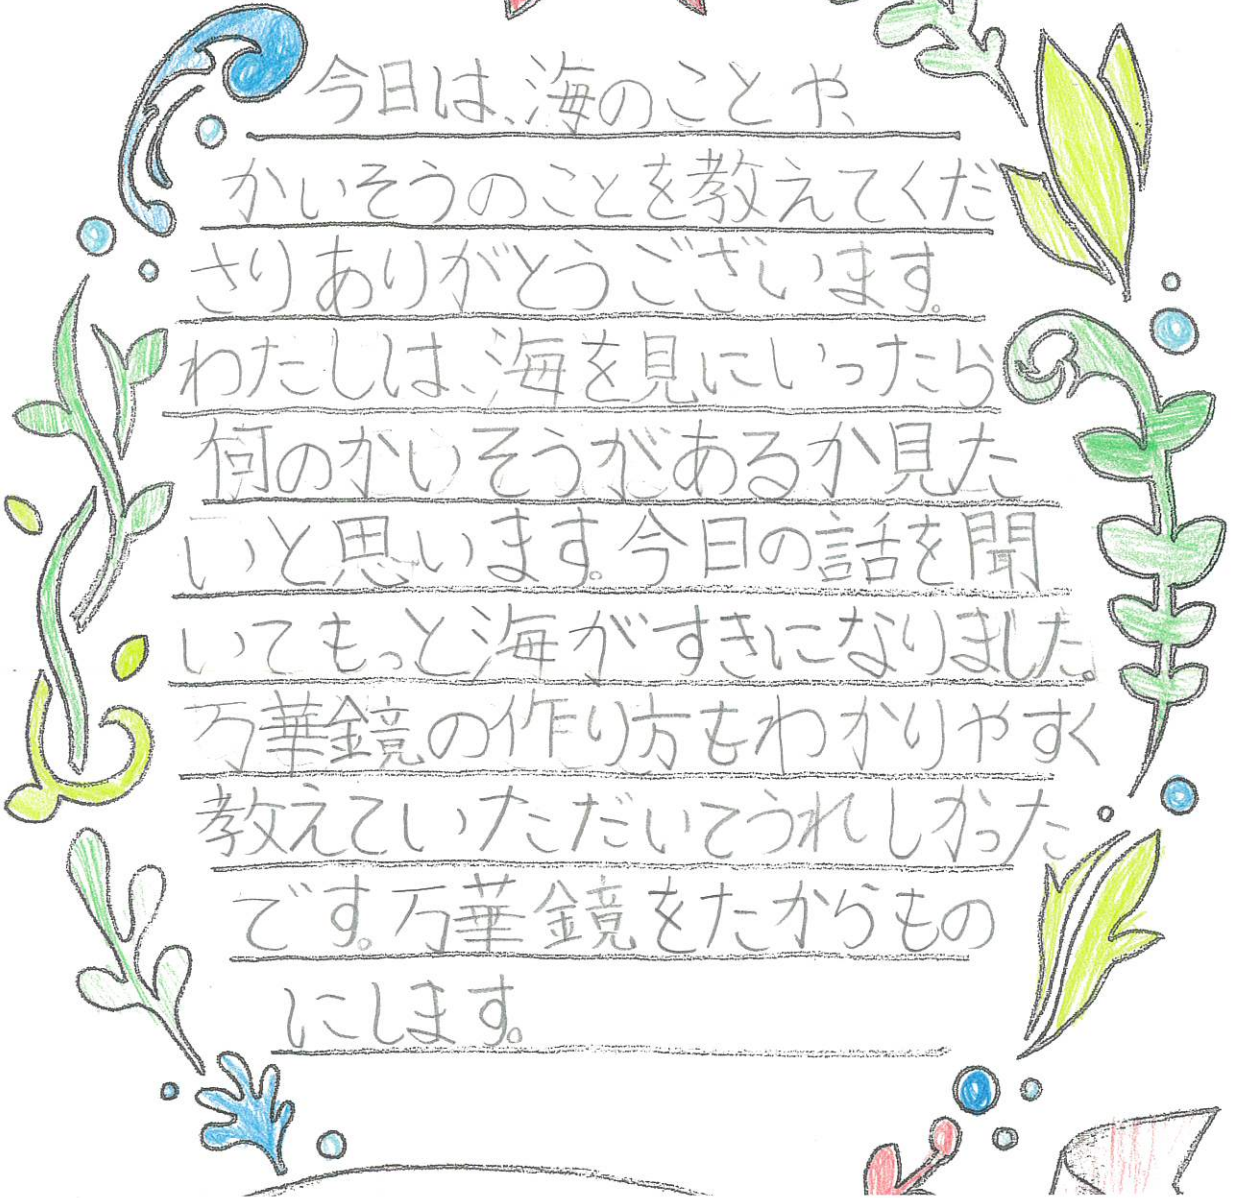 今日は、海のことや、
かいそうのことを教えてくだ
さりありがとうございます。
わたしは、海を見にいったら
何のかいそうがあるか見た
いと思います。今日の話を聞
いてもっと海がすきになりました。
万華鏡の作り方もわかりやすく
教えていただいてうれしかった
です。万華鏡をたからもの
にします。